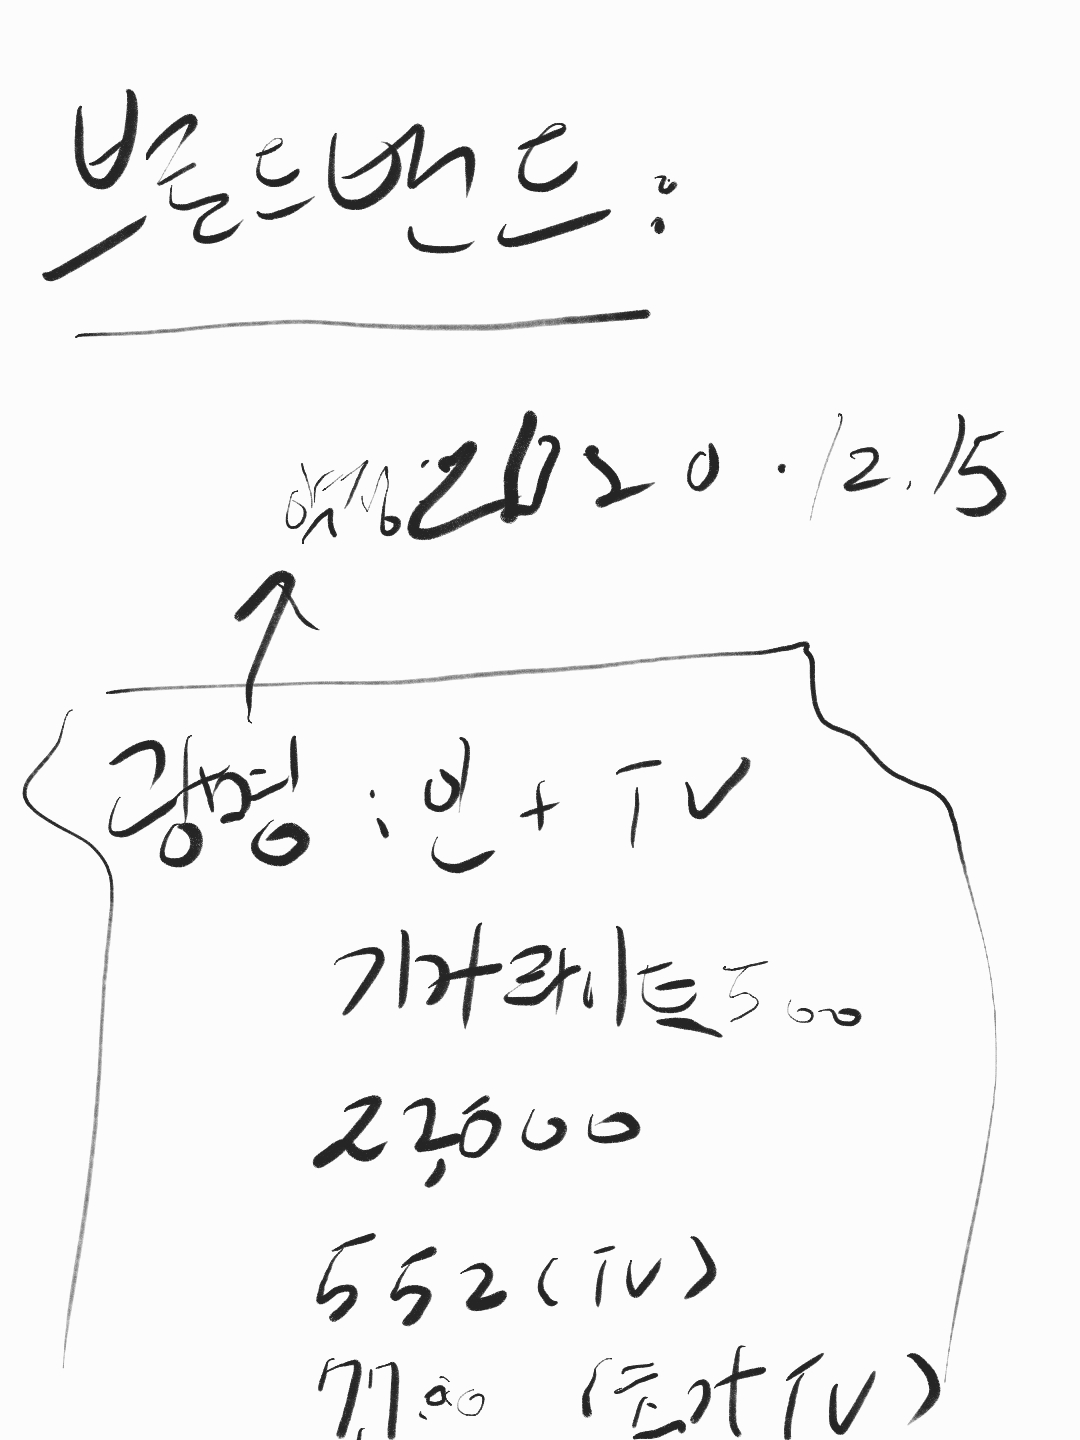 브로드밴드 :
약정 2020.12.15
광명 : 인 + TV
기가라이트500
22,000
552 (TV)
7700 (추가TV)